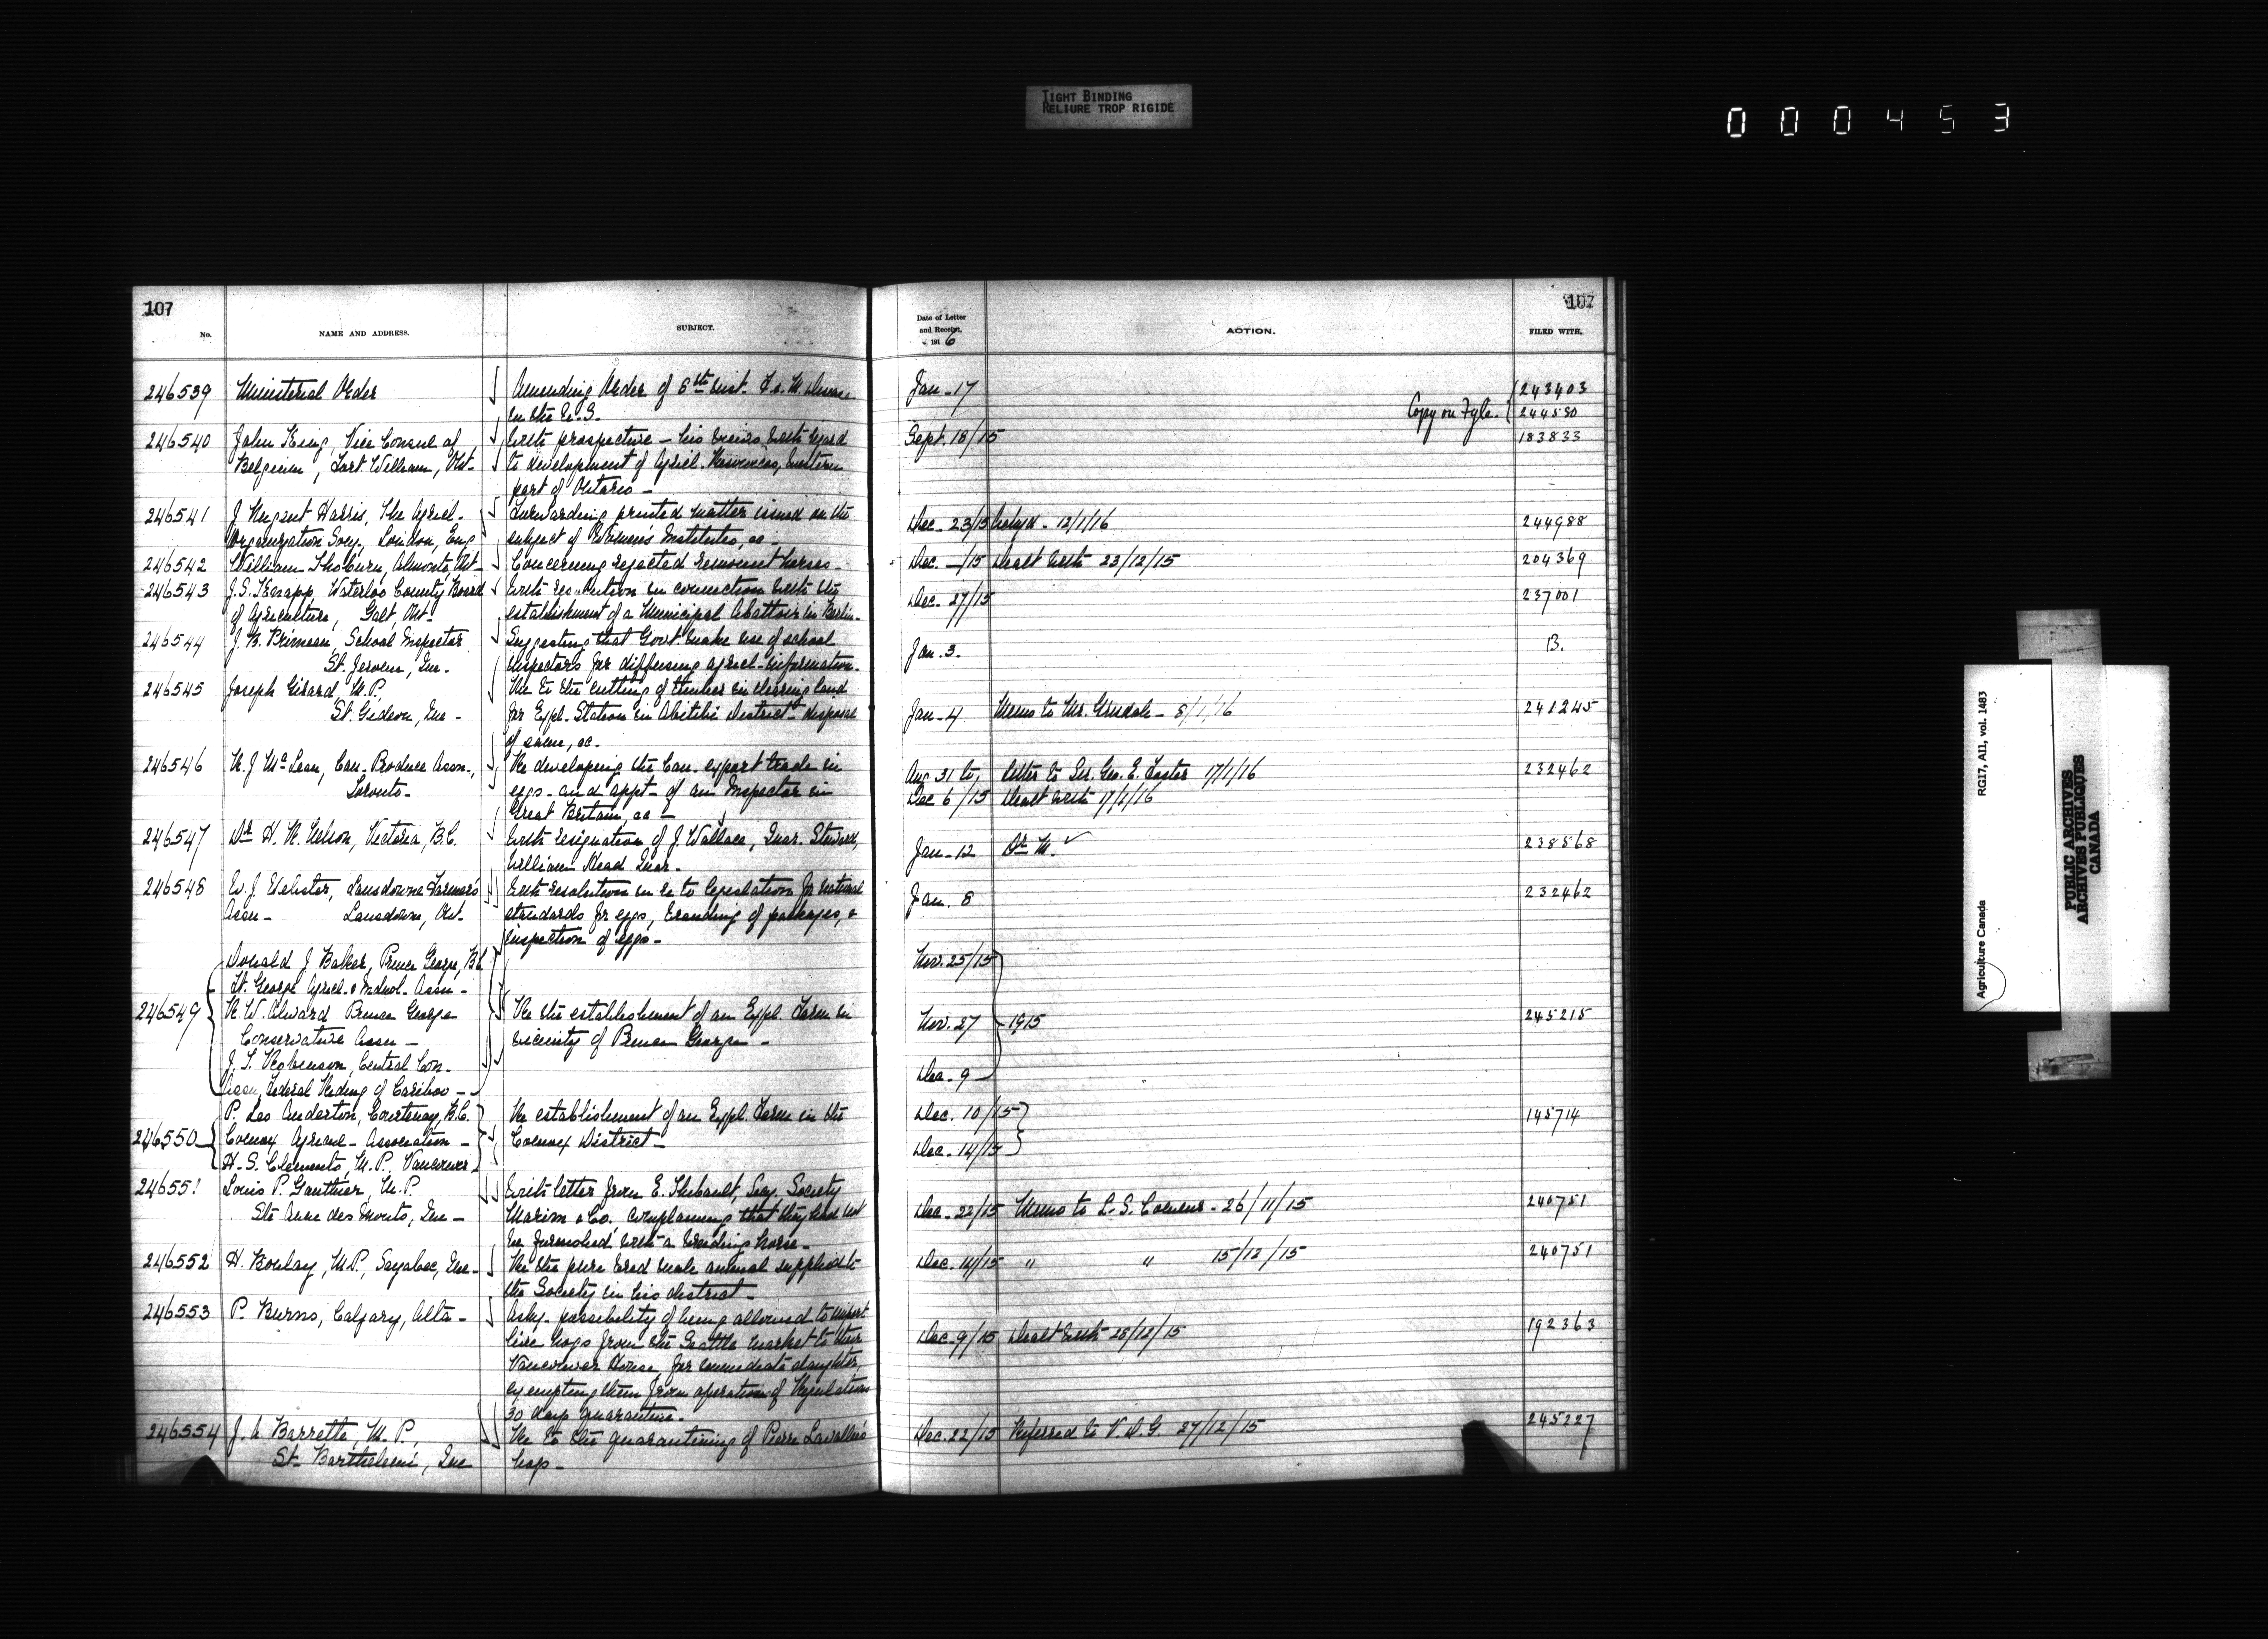 TIGHT BINDING
RELIURE TROP RIGIDE
000453
107
No.
NAME AND ADDRESS.
SUBJECT.
246539 Ministerial Order Amending Order of 6th inst.
in the
246540 John King, Vice Consul of with prospecture – his views with regard
Belgium, Fort William, Ont. to development of Agricl. Resources, western
part of Ontario –
246541 J Nugent Harris, The Agricl. Forwarding printed matter issued on the
Organization Socy. London, Eng subject of Women's Institutes, &c –
246542 William Thoburn, Almonte, Ont – Concerning rejected remount horses –
246543 J.S. Knapp, Waterloo County Board with resolution in connection with the
of Agriculture, Galt, Ont – establishment of a Municipal Abattoir in Berlin –
246544 J. B. Primeau, School Inspector Suggesting that Govt. make use of school
St. Jerome, Que – inspectors for diffusing agricl. information.
246545 Joseph Girard, M.P. Re to the cutting of timber in clearing land
St. Gedeon, Que – for Expl. Station in Abitibi District – disposal
of same, &c.
246546 R. J McLean, Can. Produce Assn., Re developing the Can. export trade in
Toronto – eggs – and appt – of an Inspector in
Great Britain, &c –
246547 Dr H. R. Nelson, Victoria, B.C. with resignation of J. Wallace, Quar. Steward,
William Head Quar.
246548 W. J Webster, Lansdowne Farmers with resolution in re to legislation for national
Assn – Lansdowne, Ont. standards for eggs, branding of packages, &
inspection of eggs –
Donald J Baker, Prince George, B.C.
Ft. George Agricl. & Indusl. Assn –
246549 R. W. Alward Prince George Re the establishment of an Expl. Farm in
Conservative Assn – vicinity of Prince George –
J. T. Robinson, Central Con.
Assn, Federal Riding of Cariboo –
P. Leo Anderton, Courtenay, B.C. Re establishment of an Expl. Farm in the
246550 Comox Agricul – Association – Comox District –
H. S. Clements, M.P. Vancouver
246551 Louis P. Gauthier, M.P. with letter from E. Thibault, Secy. Society
Ste Anne des Monts, Que – & Co. complaining that they had not
be furnished with a breeding horse –
246552 H. Boulay, M.P., Sayabec, Que – Re the pure bred male animal supplied to
the Society in his district –
246553 P. Burns, Calgary, Alta – Askg. possibility of being allowed to import
live hogs from the Seattle market to their
Vancouver House, for immediate slaughter,
exempting them from operation of Regulations
30 days quarantine.
246554 J. A Barrette, M.P., Re to the quarantining of Pierre Lavallée's
St. Barthelemi, Que hogs –
107
Date of Letter
and Receipt,
1916
ACTION.
FILED WITH.
Jan – 17 243403
Copy on Fyle. 244580
Sept. 18/15 183833
Dec – 23/15 Actgd. 12/1/16 244988
Dec. –/15 Dealt with 23/12/15 204369
Dec. 27/15 237001
Jan. 3 – B.
Jan – 4 Memo to Mr. Grisdale – 8/1/16 241245
Aug 31 to, letter to Sir. Geo. E. Foster 17/1/16 232462
Dec 6/15 Dealt with 17/1/16
Jan – 12 Dr M. ✓ 238568
Jan. 8 232462
Nov. 25/15
Nov. 27 1915 245215
Dec. 9
Dec. 10/15 145714
Dec. 14/15
Dec. 22/15 Memo to – 26/11/15 240751
Dec. 14/15 " " 15/12/15 240751
Dec. 9/15 Dealt with 28/12/15 192363
Dec. 22/15 Referred to V. D. G. 27/12/15 245227
Agriculture Canada RG17, AII, vol. 1483
PUBLIC ARCHIVES
ARCHIVES PUBLIQUES
CANADA